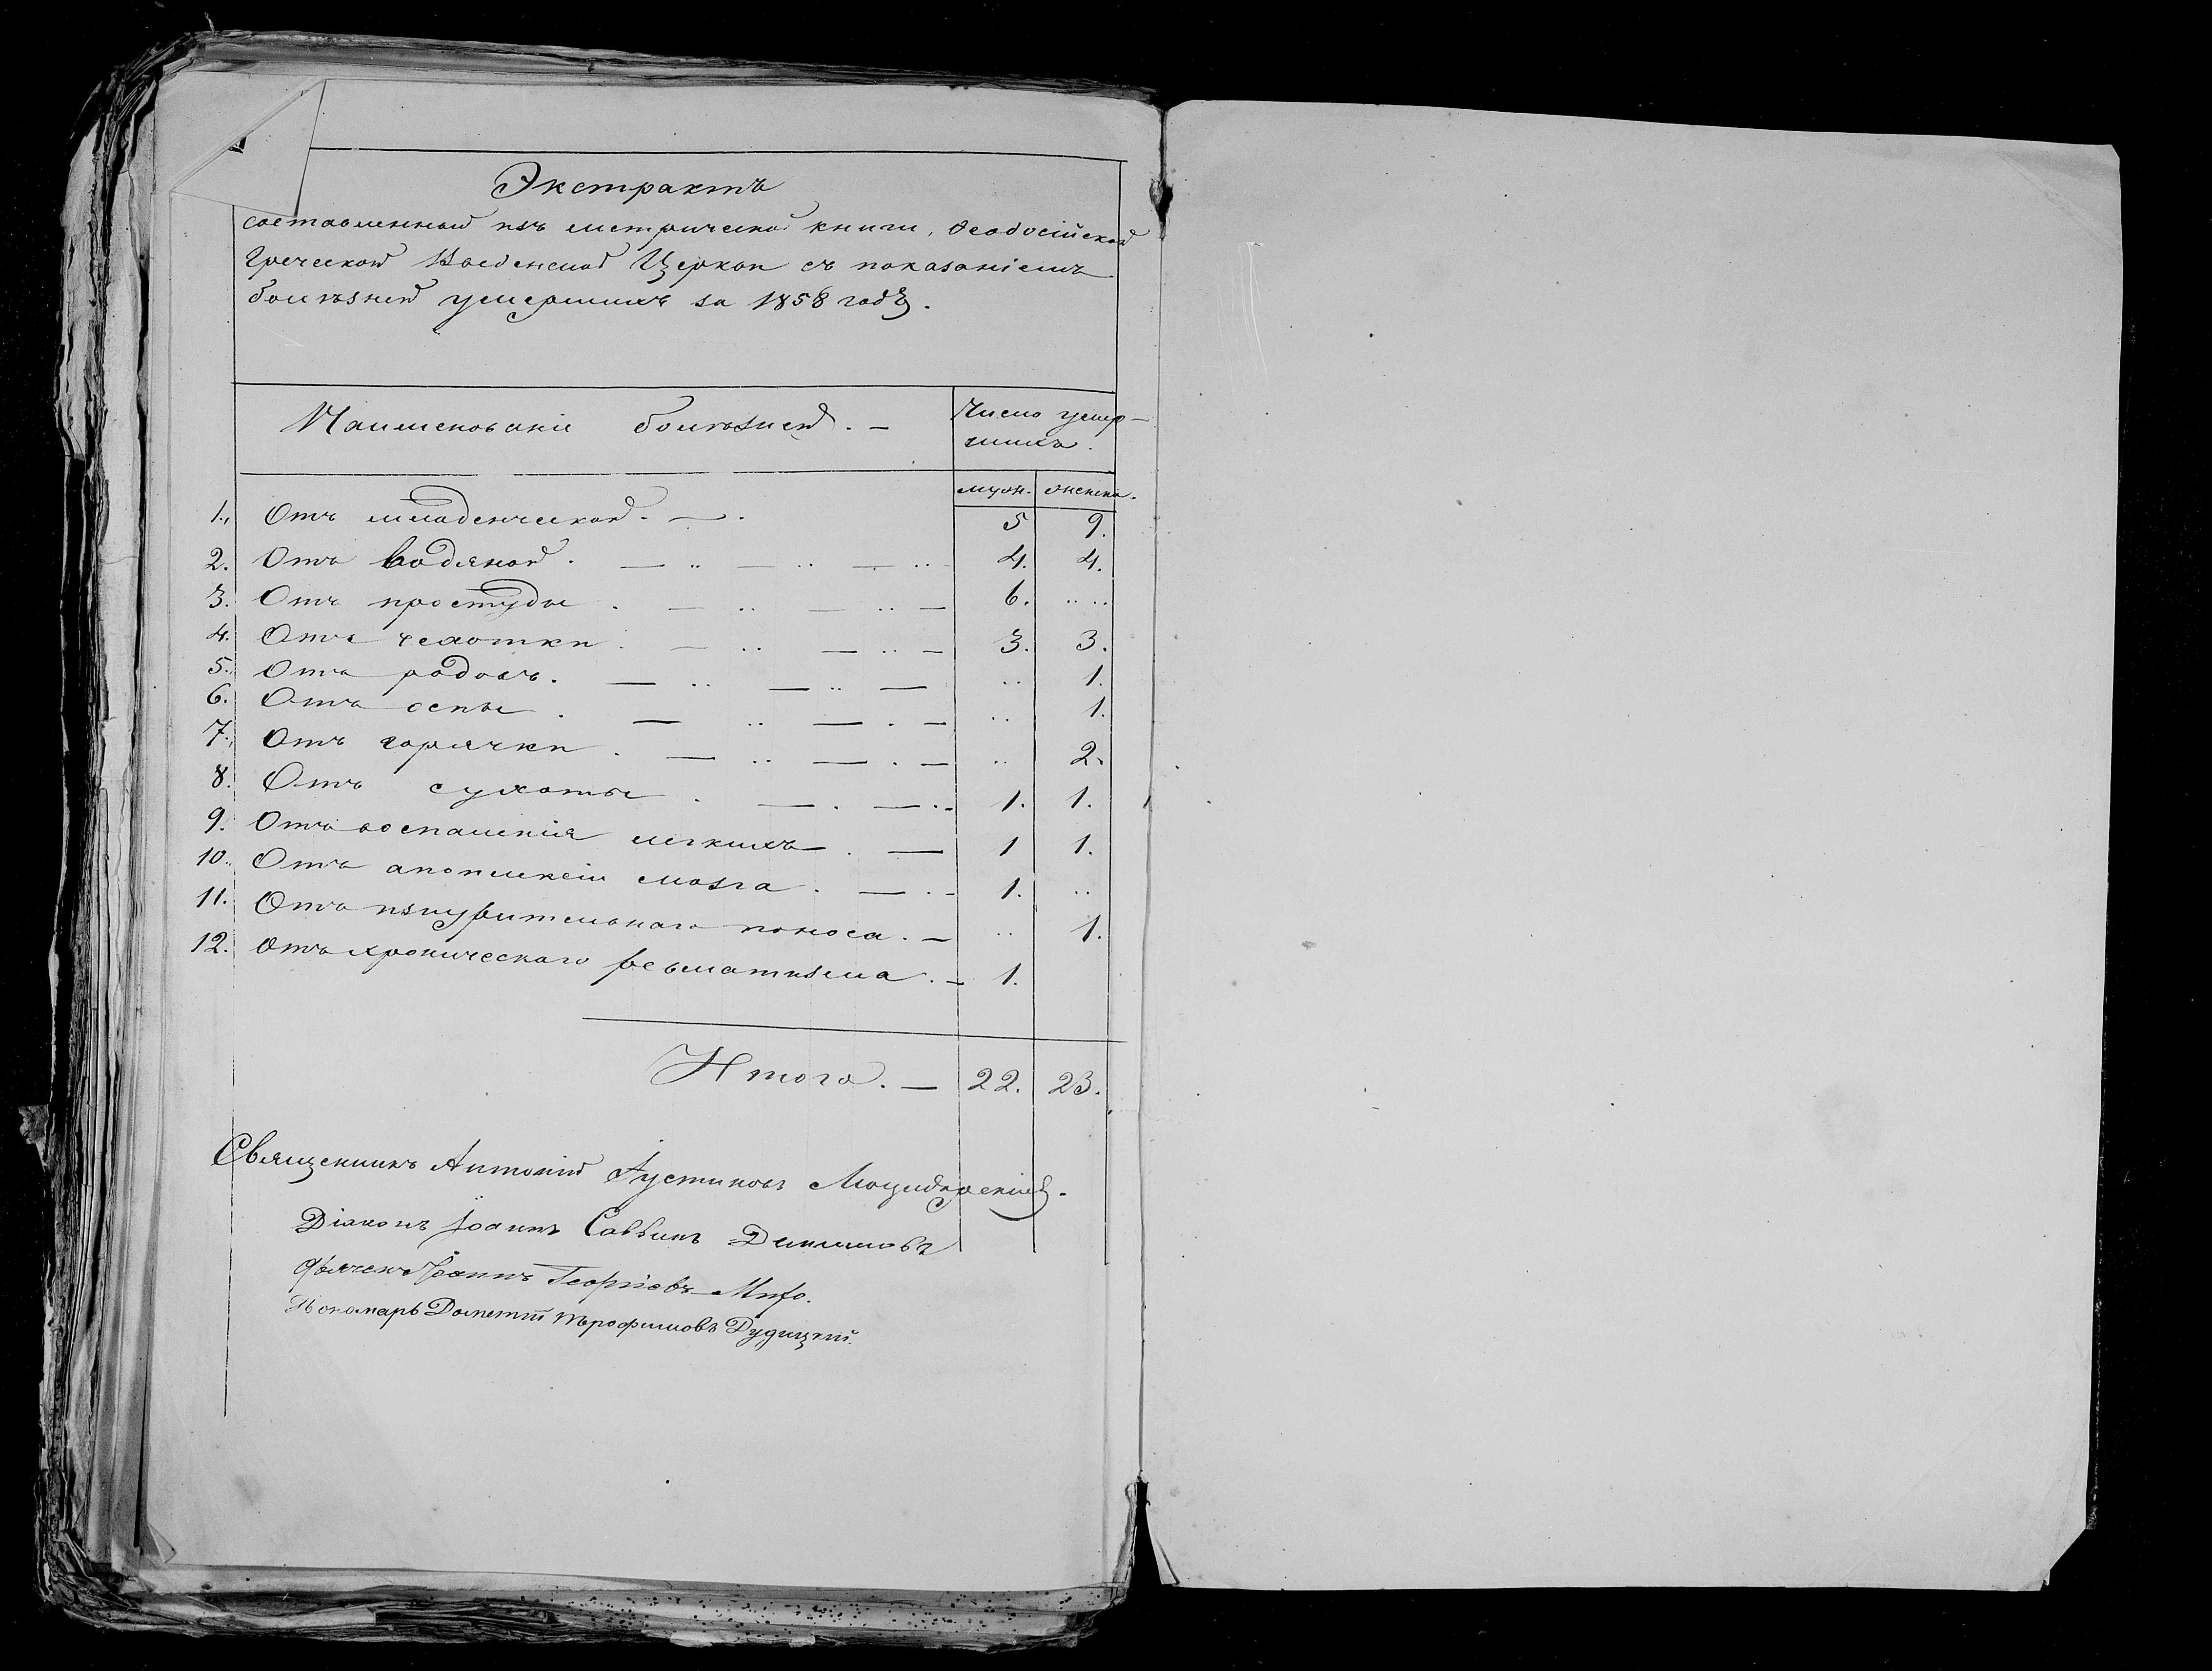 Экстрактъ
составленный изъ метрической книги, Ѳеодосійской
Греческой Введенской Церкви съ показаніемъ
болѣзней умершихъ за 1858 годъ.
Наименованіе болѣзней. —
Число умер-
шихъ.
муж. женск.
1., Отъ младенческой. — . 5 9.
2. Отъ водяной. — .. — .. — .. 4. 4.
3. Отъ простуды. — .. — .. — 6. .. ..
4. Отъ чехотки. — .. — .. — 3. 3.
5. Отъ родовъ. — .. — .. — .. 1.
6. Отъ оспы. — .. — . — .. 1.
7. Отъ горячки. — .. — . — .. 2.
8. Отъ сухоты. — . — .. - 1. 1.
9. Отъ воспаленія легкихъ. — 1 1.
10. Отъ апоплексіи мозга. — . - 1. ..
11. Отъ изнурительнаго поноса. — .. 1.
12. Отъ хроническаго ревматизма. - 1.
Итого. — 22. 23.
Священникъ Антоній Іустиновъ
Діаконъ Іоаннъ Саввинъ
Дьячекъ Іоаннъ Георгіевъ
Пономарь Дометій Трофимовъ Дудицкій.